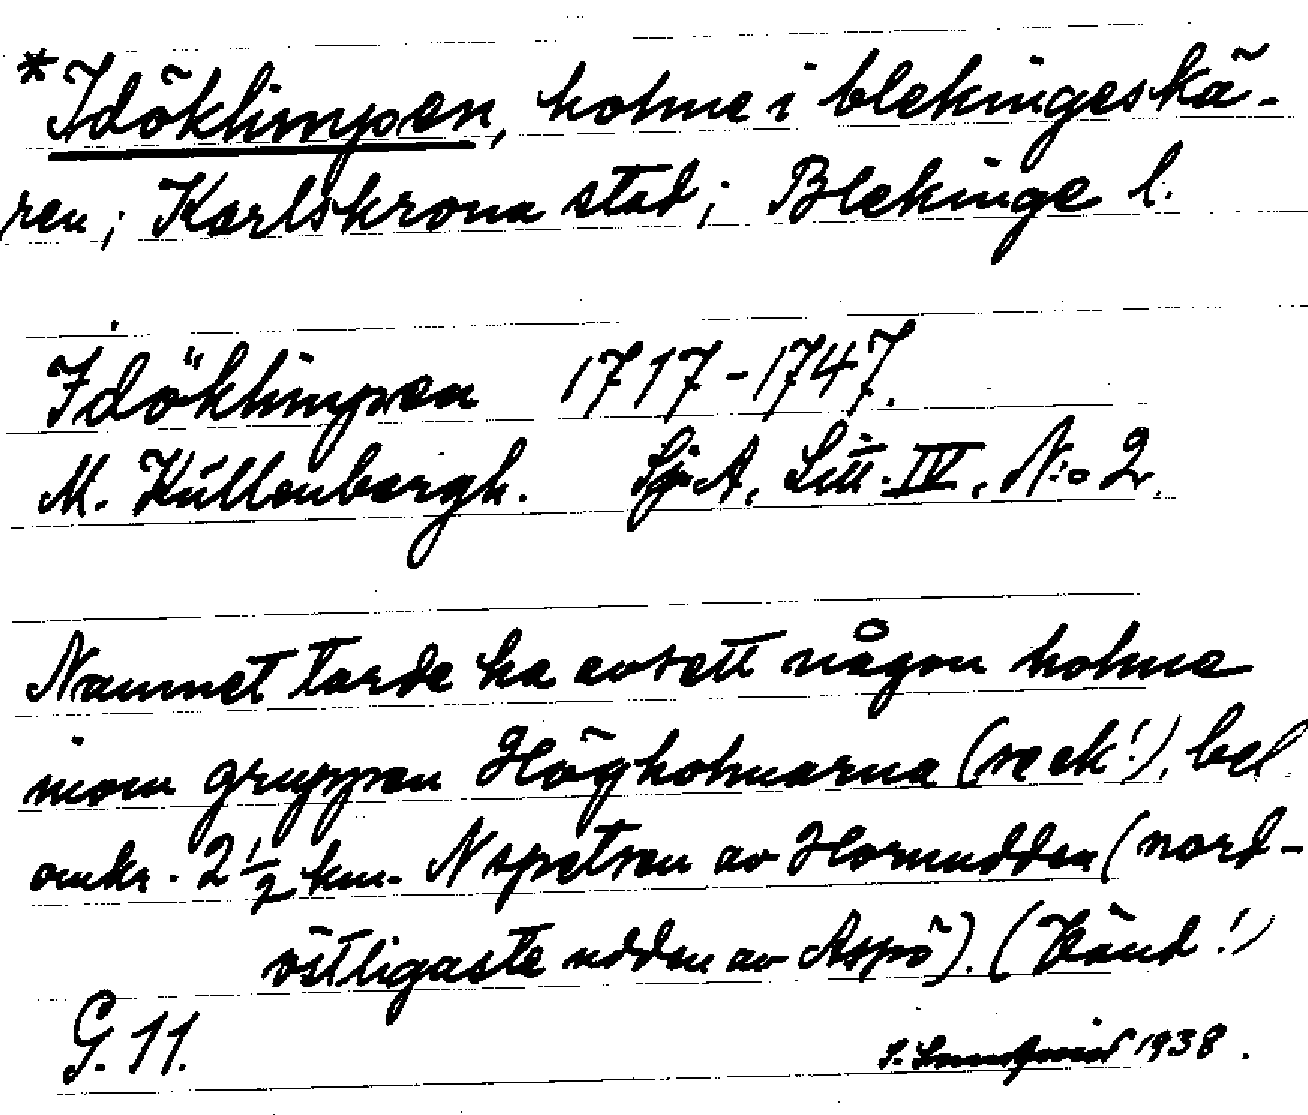 *Idöklimpen, holme i blekingeskä-
ren; Karlskrona stad; Blekinge l.
Idöklimpen 1717-1747.
M. Küllenbergh. Sjö A, Litt. IV, N:o 2.
Namnet torde ha avsett någon holme
inom gruppen Högholmarna (se ek!), bel
omkr. 2 1/2 km. N spetsen av Hornudden (nord-
östligaste udden av Aspö). (Känd!)
G. 11.
1938.